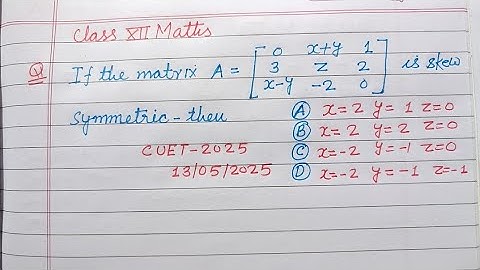 Class XII Maths
Q If the matrix A = [ 0 x+y 1 is skew
3 z 2
x-y -2 0 ]
Symmetric - then
A x=2 y=1 z=0
B x=2 y=2 z=0
CUET-2025
C x=-2 y=-1 z=0
13/05/2025
D x=-2 y=-1 z=-1